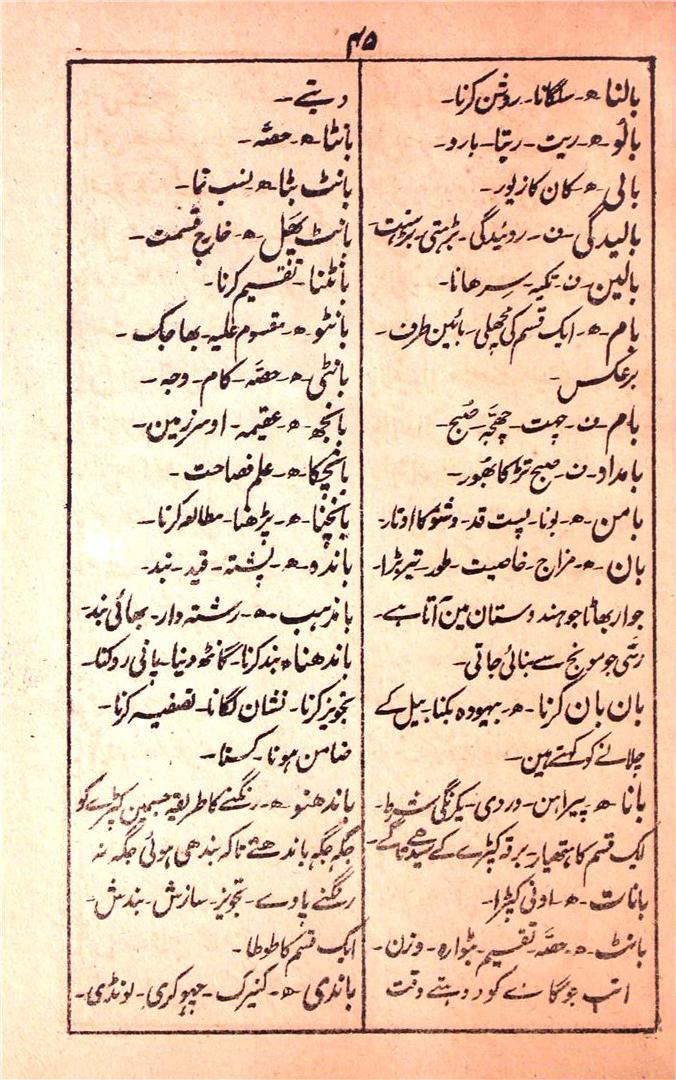 ۴۵
بالنا ھ۔ سلگانا۔ روشن کرنا۔
بالُو ھ۔ ریت۔ ریتا۔ بارو۔
بالی ھ۔ کان کا زیور۔
بالیدگی ف۔ روئیدگی۔ بڑہتی۔ بڑھنت۔
بالین ف۔ تکیہ۔ سرھانا۔
بام ھ۔ ایک قسم کی مچھلی۔ بائین طرف۔
برعکس۔
بام ف۔ چھت۔ چھجّہ۔ صُبح۔
بامداد۔ ف۔ صبح تڑکا بھور۔
بامن ھ۔ بونا۔ پست قد۔ وشنو کا اوتار۔
بان ھ۔ مزاج۔ خاصیت۔ طور۔ تیر بڑا۔
جوار بھاٹا جو ہندوستان مین آتا ہے۔
رسّی جو مونج سے بنائی جاتی۔
بان بان کرنا۔ ھ۔ بیہودہ بکنا۔ بیل کے
چلانے کو کہتے ہین۔
بانا ھ پیراہن۔ وردی۔ یکرنگی
ایک قسم کا ہتھیار۔ کپڑے کے سیدھے تاگے۔
بانات۔ ھ۔ اونی کپڑا۔
بانٹ۔ ھ۔ حصّہ۔ تقسیم۔ بٹوارہ۔ وزن۔
جو گائے کو دوہتے وقت
دیتے۔
بانٹا ھ۔ حصّہ۔
بانٹ بٹا ھ نسب نما۔
بانٹ پھَل ھ۔ خارج قسمت۔
بانٹنا۔ تقسیم کرنا۔
بانٹو ھ۔ مقسوم علیہ۔ بھاجک۔
بانٹی ھ۔ حصّہ۔ کام۔ وجہ۔
بانجھ ھ۔ عقیمہ۔ اوسر زمین۔
بانچکا ھ۔ علم فصاحت۔
بانچنا ھ۔ پڑھنا۔ مطالعہ کرنا۔
باندہ ھ۔ پشتہ۔ قید۔ بند۔
باندہب ھ۔ رشتہ دار۔ بھائی بند۔
باندھنا ھ بند کرنا۔ گانٹھ دینا۔ پانی روکنا۔
تجویز کرنا۔ نشان لگانا۔ تصفیہ کرنا۔
ضامن ہونا۔ کسنا۔
باندھنو ھ۔ رنگنے کا طریقہ جسمین کپڑے کو
جگہ جگہ باندھتے تاکہ بندھی ہوئی جگہ نہ
رنگنے پاوے۔ تجویز۔ سازش۔ بندش۔
ایک قسم کا طوطا۔
باندی ھ۔ کنیزک۔ چھوکری۔ لونڈی۔